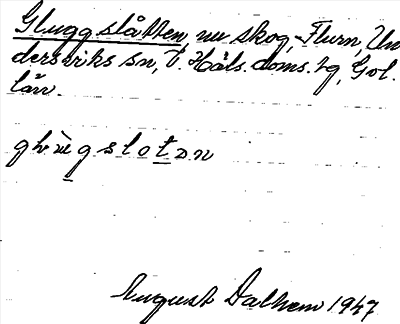 Gluggslåtten, nu skog, Flurn, Un
dersviks sn, V. Häls. doms. tg, Gol.
län.
August Dalhem 1947